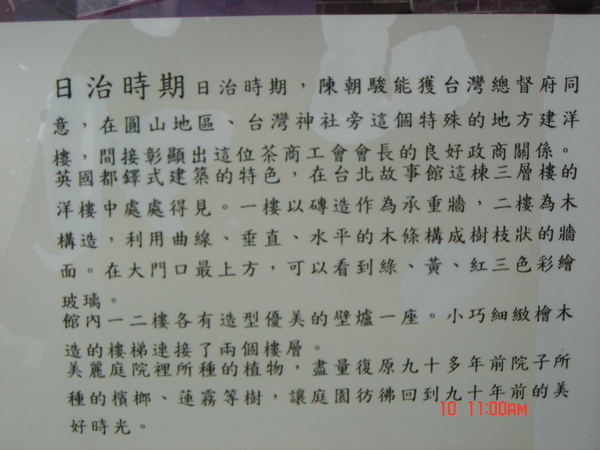 日治時期日治時期，陳朝駿能獲台灣總督府同
意，在圓山地區、台灣神社旁這個特殊的地方建洋
樓，間接彰顯出這位茶商工會會長的良好政商關係。
英國都鐸式建築的特色，在台北故事館這棟三層樓的
洋樓中處處得見。一樓以磚造作為承重牆，二樓為木
構造，利用曲線、垂直、水平的木條構成樹枝狀的牆
面。在大門口最上方，可以看到綠、黃、紅三色彩繪
玻璃。
館內一二樓各有造型優美的壁爐一座。小巧細緻檜木
造的樓梯連接了兩個樓層。
美麗庭院裡所種的植物，盡量復原九十多年前院子所
種的檳榔、蓮霧等樹，讓庭園彷彿回到九十年前的美
好時光。
10 11:00AM